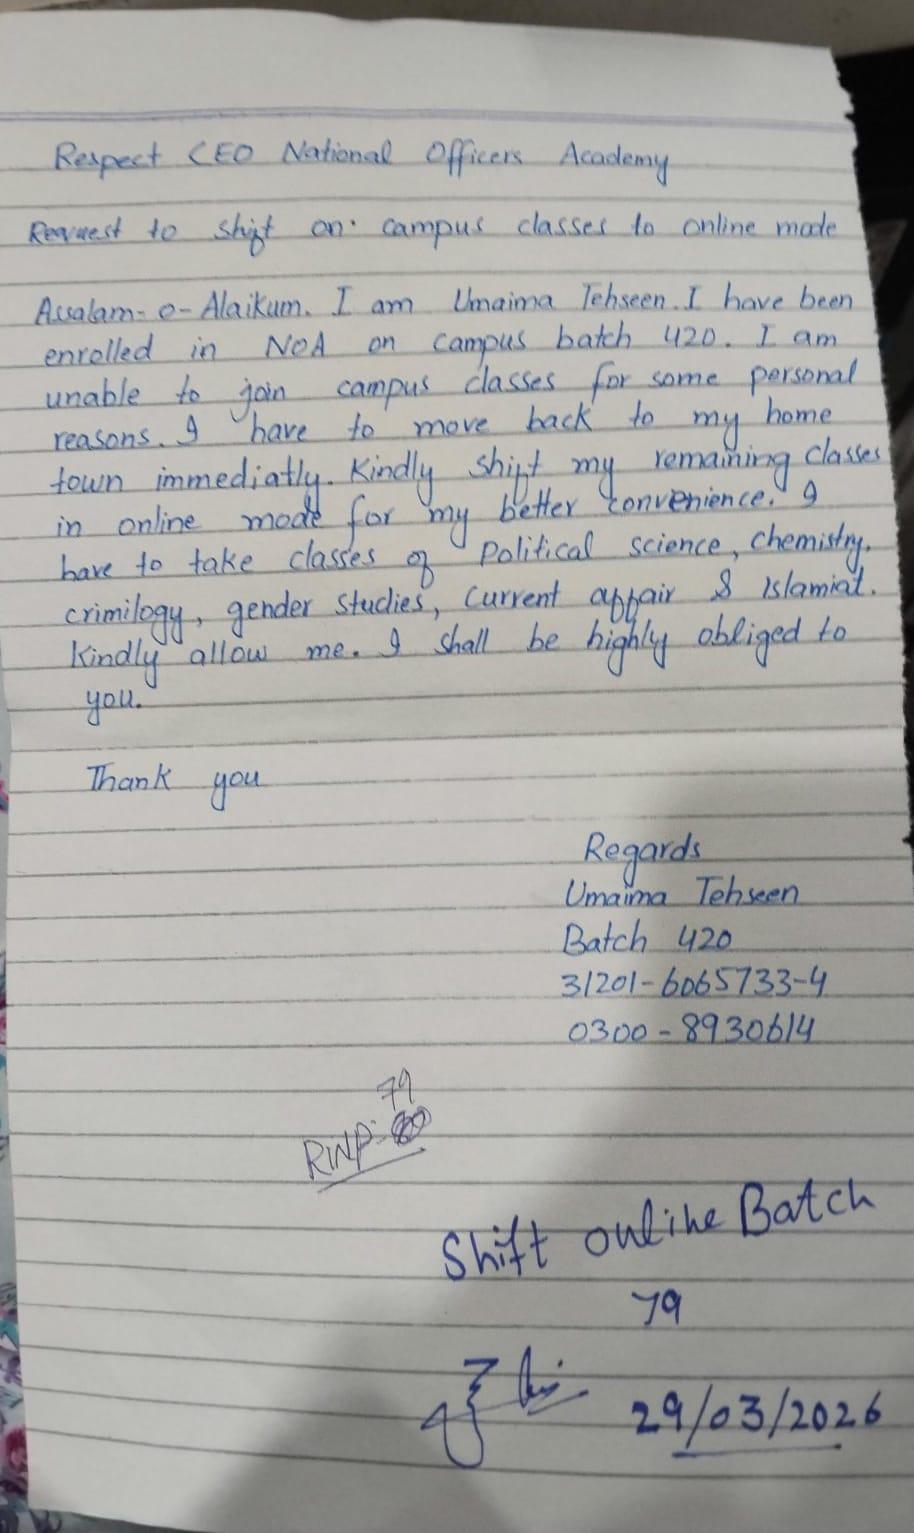 Respect CEO National Officers Academy
Request to shift on-campus classes to online mode
Assalam-o-Alaikum. I am Umaima Tehseen. I have been
enrolled in NOA on campus batch 420. I am
unable to join campus classes for some personal
reasons. I have to move back to my home
town immediatly. Kindly shift my remaining classes
in online mode for my better convenience. I
have to take classes of Political science, chemistry,
crimilogy, gender studies, current affair & Islamiat.
Kindly allow me. I shall be highly obliged to
you.
Thank you
Regards
Umaima Tehseen
Batch 420
31201-6065733-4
0300-8930614
79
RWP-
Shift online Batch
79
29/03/2026